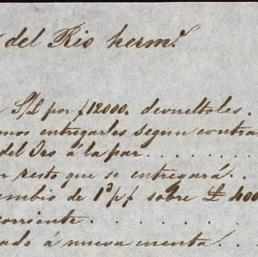 del Rio herm.ˢ
S/L por f 12000. devueltoles.
mos entregarles segun contra
del Oro á la par. . . . . . . .
resto que se entregará. .
cambio de 1ª p/f sobre £ 400
corriente. . . . . . . . .
ado á nueva cuenta. . .